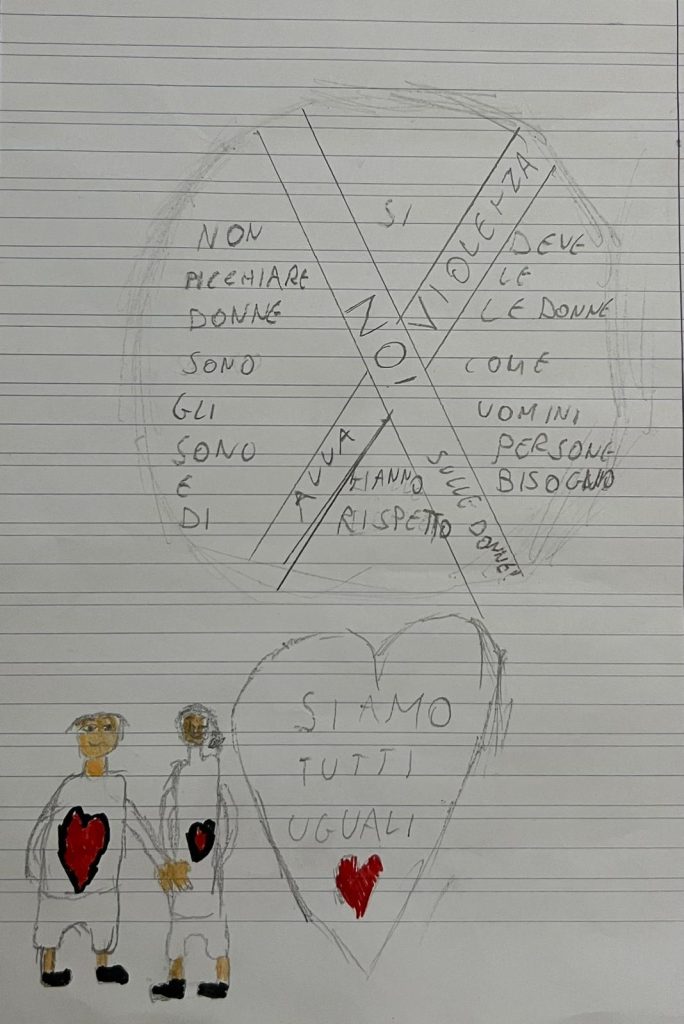 NON SI DEVE
PICCHIARE LE
DONNE LE DONNE
SONO COME
GLI UOMINI
SONO PERSONE
E HANNO BISOGNO
DI RISPETTO
NO!
AVVA VIOLENZA
SULLE DONNE!
SIAMO
TUTTI
UGUALI